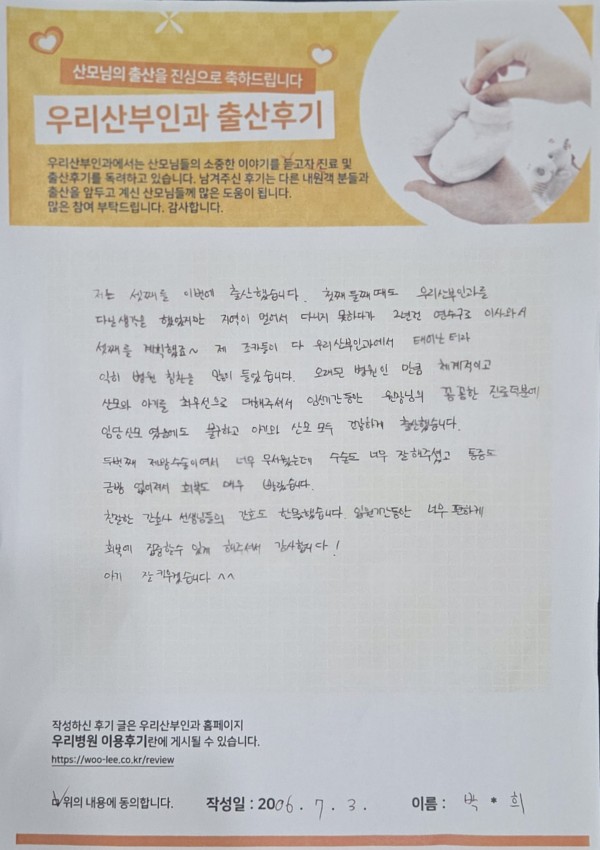 산모님의 출산을 진심으로 축하드립니다
우리산부인과 출산후기
우리산부인과에서는 산모님들의 소중한 이야기를 듣고자 진료 및
출산후기를 독려하고 있습니다. 남겨주신 후기는 다른 내원객 분들과
출산을 앞두고 계신 산모님들께 많은 도움이 됩니다.
많은 참여 부탁드립니다. 감사합니다.
저는 셋째를 이번에 출산했습니다. 첫째 둘째 때도 우리산부인과를
다닐생각을 했었지만 지역이 멀어서 다니지 못하다가 2년전 연수구로 이사와서
셋째를 계획했죠~ 제 조카들이 다 우리산부인과에서 태어난 터라
익히 병원 칭찬을 많이 들었습니다. 오래된 병원인 만큼 체계적이고
산모와 아기를 최우선으로 대해주셔서 임신기간동안 원장님의 꼼꼼한 진료덕분에
임당산모 였음에도 불구하고 아기와 산모 모두 건강하게 출산했습니다.
두번째 제왕수술이여서 너무 무서웠는데 수술도 너무 잘해주셨고 통증도
금방 없어져서 회복도 매우 빨랐습니다.
친절한 간호사 선생님들의 간호도 한몫했습니다. 입원기간동안 너무 편하게
회복에 집중할수 있게 해주셔서 감사합니다!
아기 잘 키우겠습니다 ^^
작성하신 후기 글은 우리산부인과 홈페이지
우리병원 이용후기란에 게시될 수 있습니다.
https://woo-lee.co.kr/review
위의 내용에 동의합니다. 작성일 : 2006. 7. 3. 이름 : 박 * 희